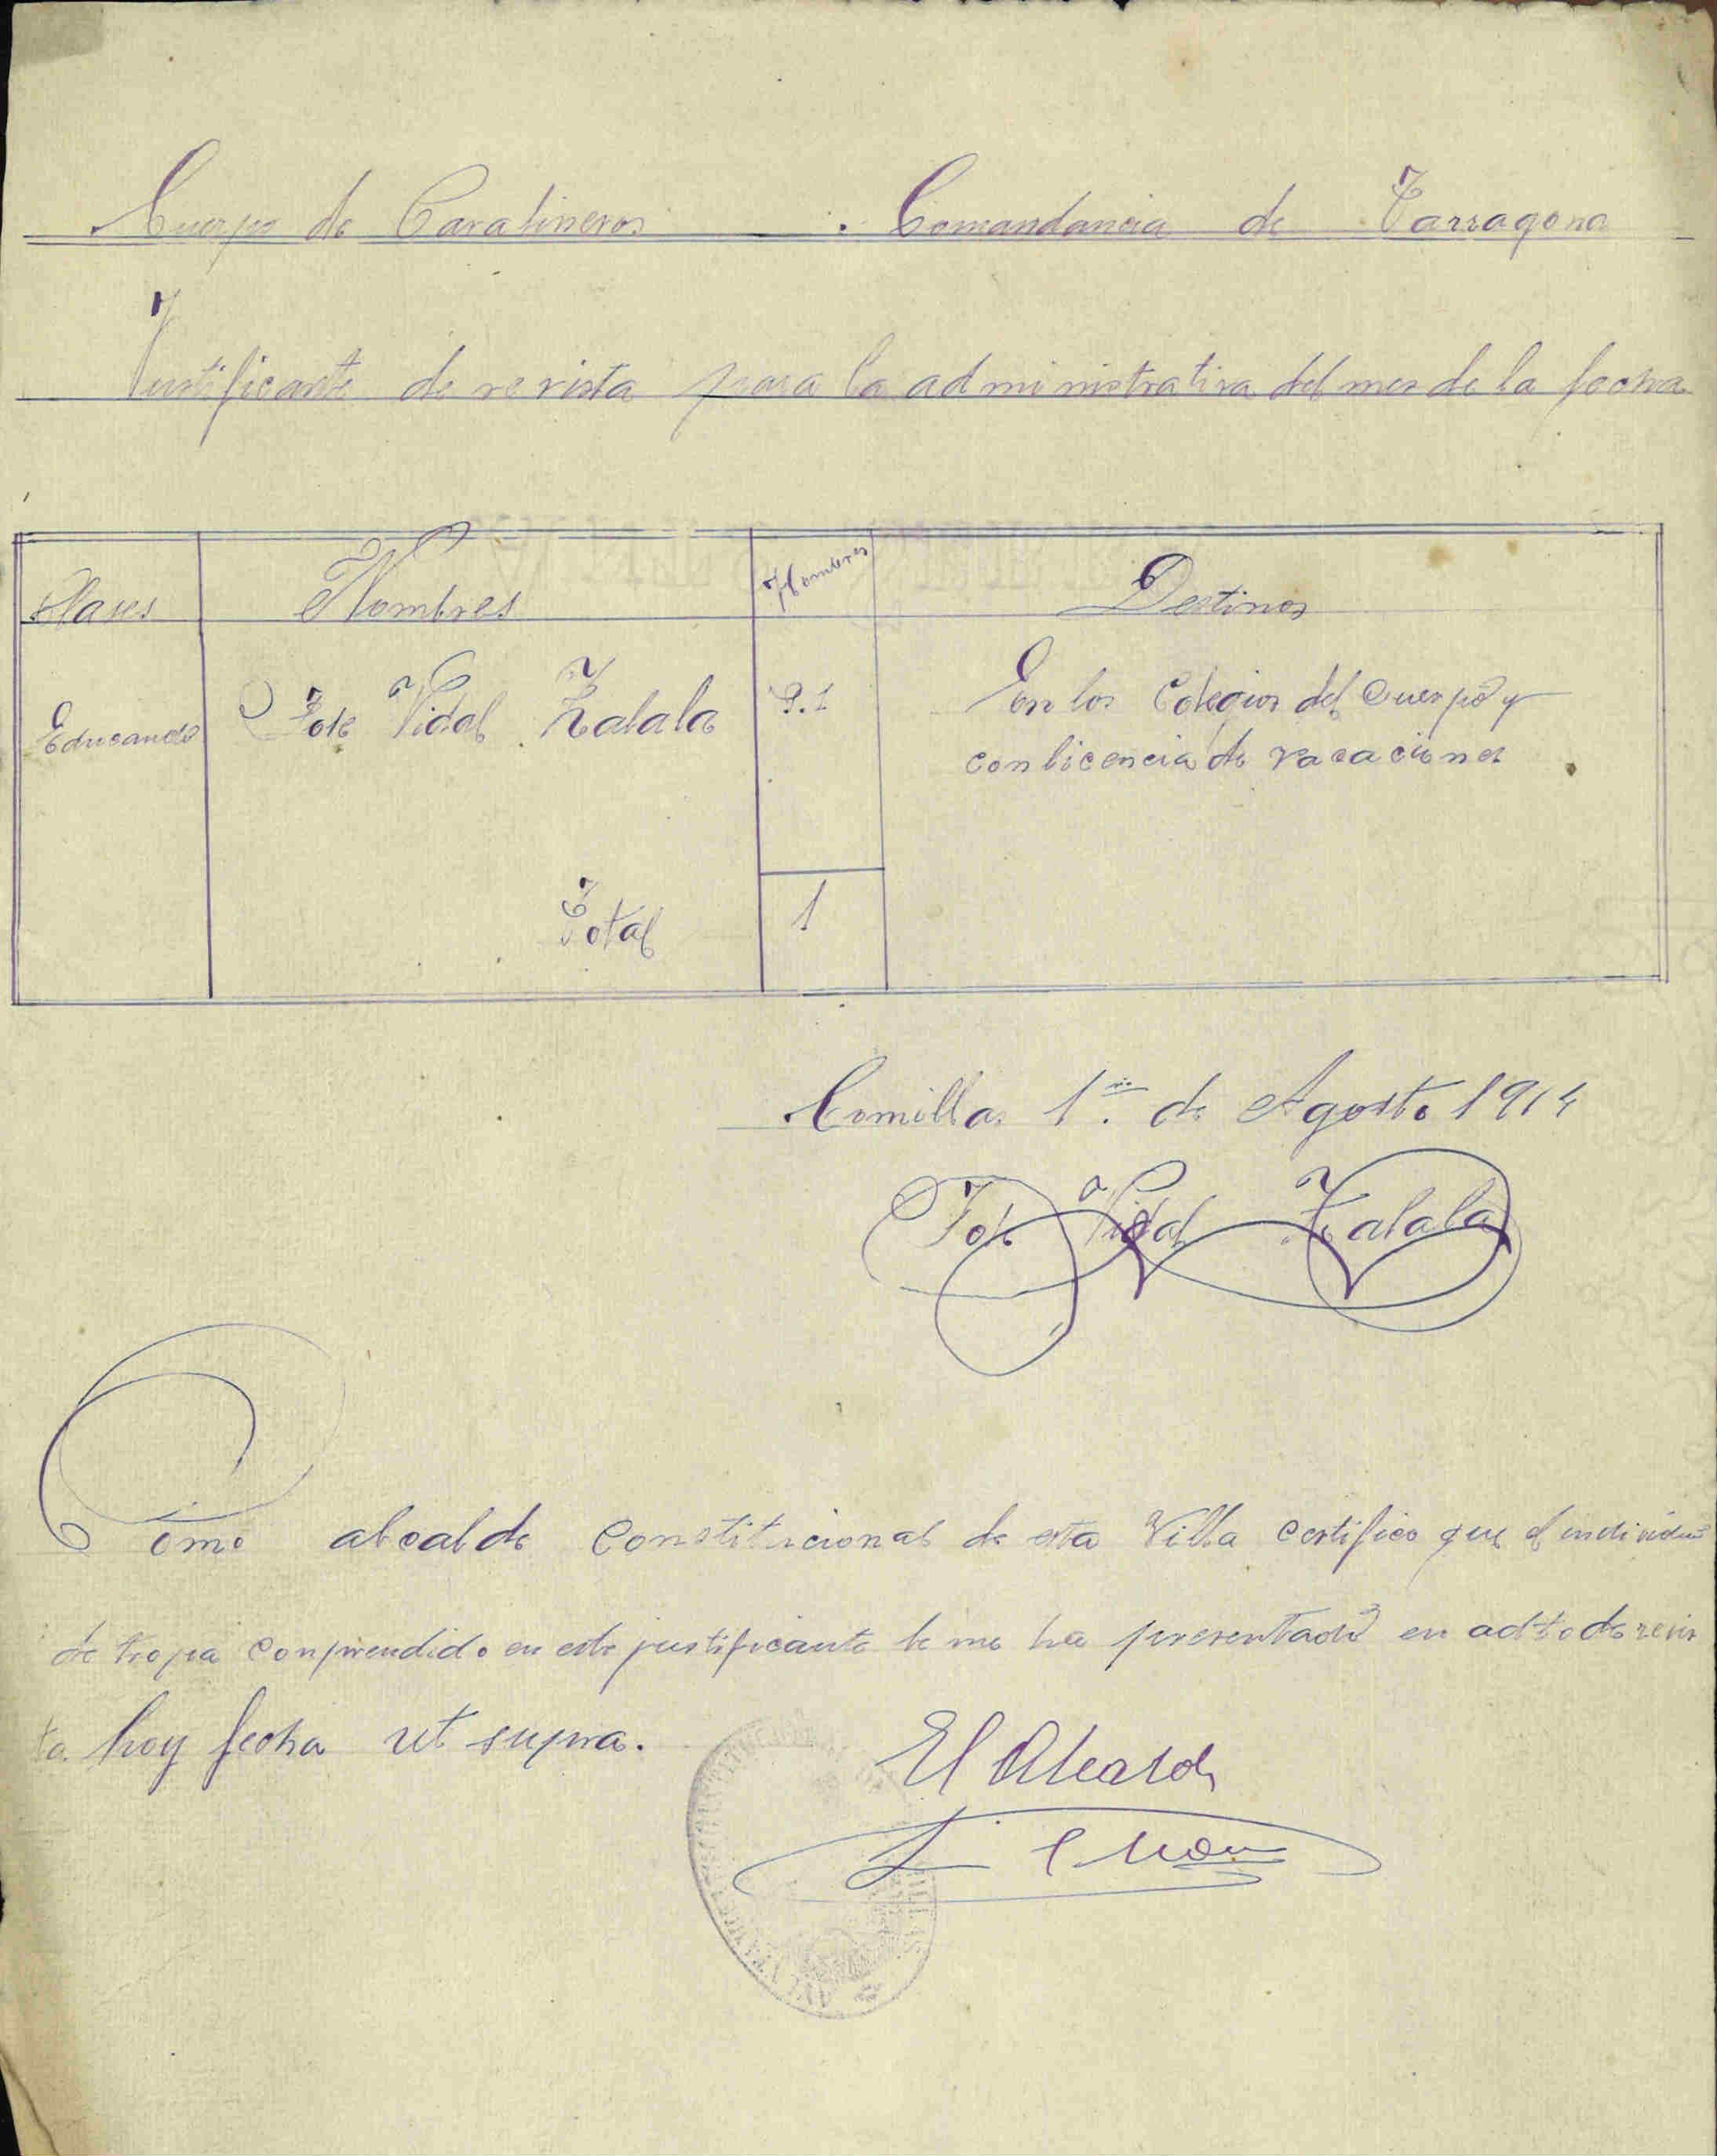 Cuerpo de Carabineros . Comandancia de Tarragona
Justificante de revista para la administrativa del mes de la fecha
Clases Nombres Hombres Destinos
Educando José Vidal Zalala P.1 En los Colegios del Cuerpo y
con licencia de vacaciones
Total 1
Comillas 1º. de Agosto 1914
José Vidal Zalala
Como alcalde Constitucional de esta Villa certifico que el individuo
de tropa conprendido en este justificante se me ha presentado en acto de revis
ta hoy fecha ut supra.
El Alcalde